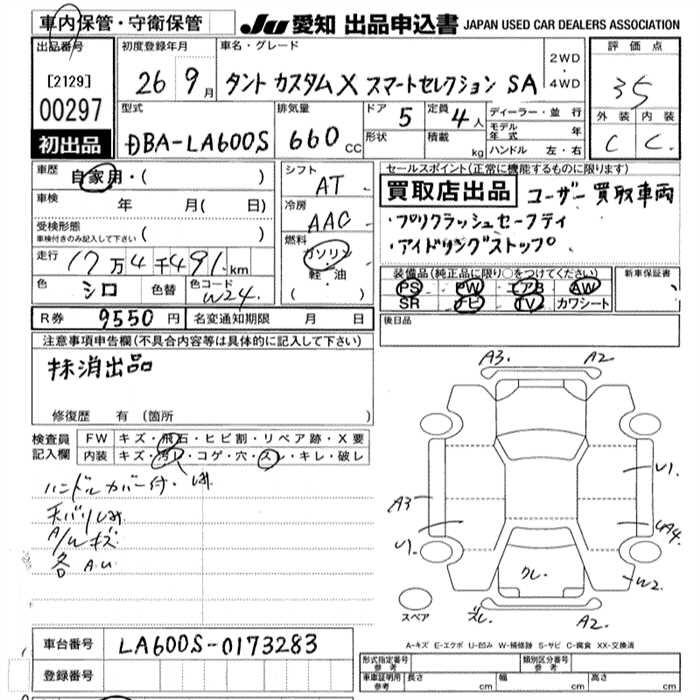 車内保管・守衛保管 JU 愛知 出品申込書 JAPAN USED CAR DEALERS ASSOCIATION
出品番号 初度登録年月 車名・グレード 2WD・4WD 評価点
[2129] 26 9月 タント カスタムX スマートセレクション SA 35
00297 型式 排気量 ドア 5 定員 4人 ディーラー・並行 外装 内装
初出品 DBA-LA600S 660CC 形状 積載 kg モデル年式 年 C C
ハンドル 左・右
車歴 自家用・( ) シフト AT セールスポイント(正常に機能するものに限ります)
車検 年 月( 日) 冷房 AAC 買取店出品 ユーザー買取車両
受検形態 ( ) ・プリクラッシュセーフティ
車検付きのみ記入して下さい
走行 17万4千491km 燃料 ガソリン 軽・油 ( ) ・アイドリングストップ
色 シロ 色替 色コード W24 装備品(純正品に限り○をつけてください) 新車保証書
PS PW エアB AW
SR ナビ TV カワシート
R券 9550円 名変通知期限 月 日 後日品
注意事項申告欄(不具合内容等は具体的に記入して下さい)
抹消出品
修復歴 有 (箇所 )
検査員記入欄 FW キズ・飛石・ヒビ割・リペア跡・X要
内装 キズ・汚レ・コゲ・穴・スレ・キレ・破レ
ハンドルカバー付・
天バリしみ
A/Wキズ
各AU
A3. A2
U1.
A3
UA4.
U1.
クレ.
W2.
スペア
ズレ. A2.
A-キズ E-エクボ U-凹み W-補修跡 S-サビ C-腐食 XX-交換済
車台番号 LA600S-0173283
登録番号
形式指定番号 参考 類別区分番号 参考
車庫証明用 参考 長さ cm 幅 cm 高さ cm